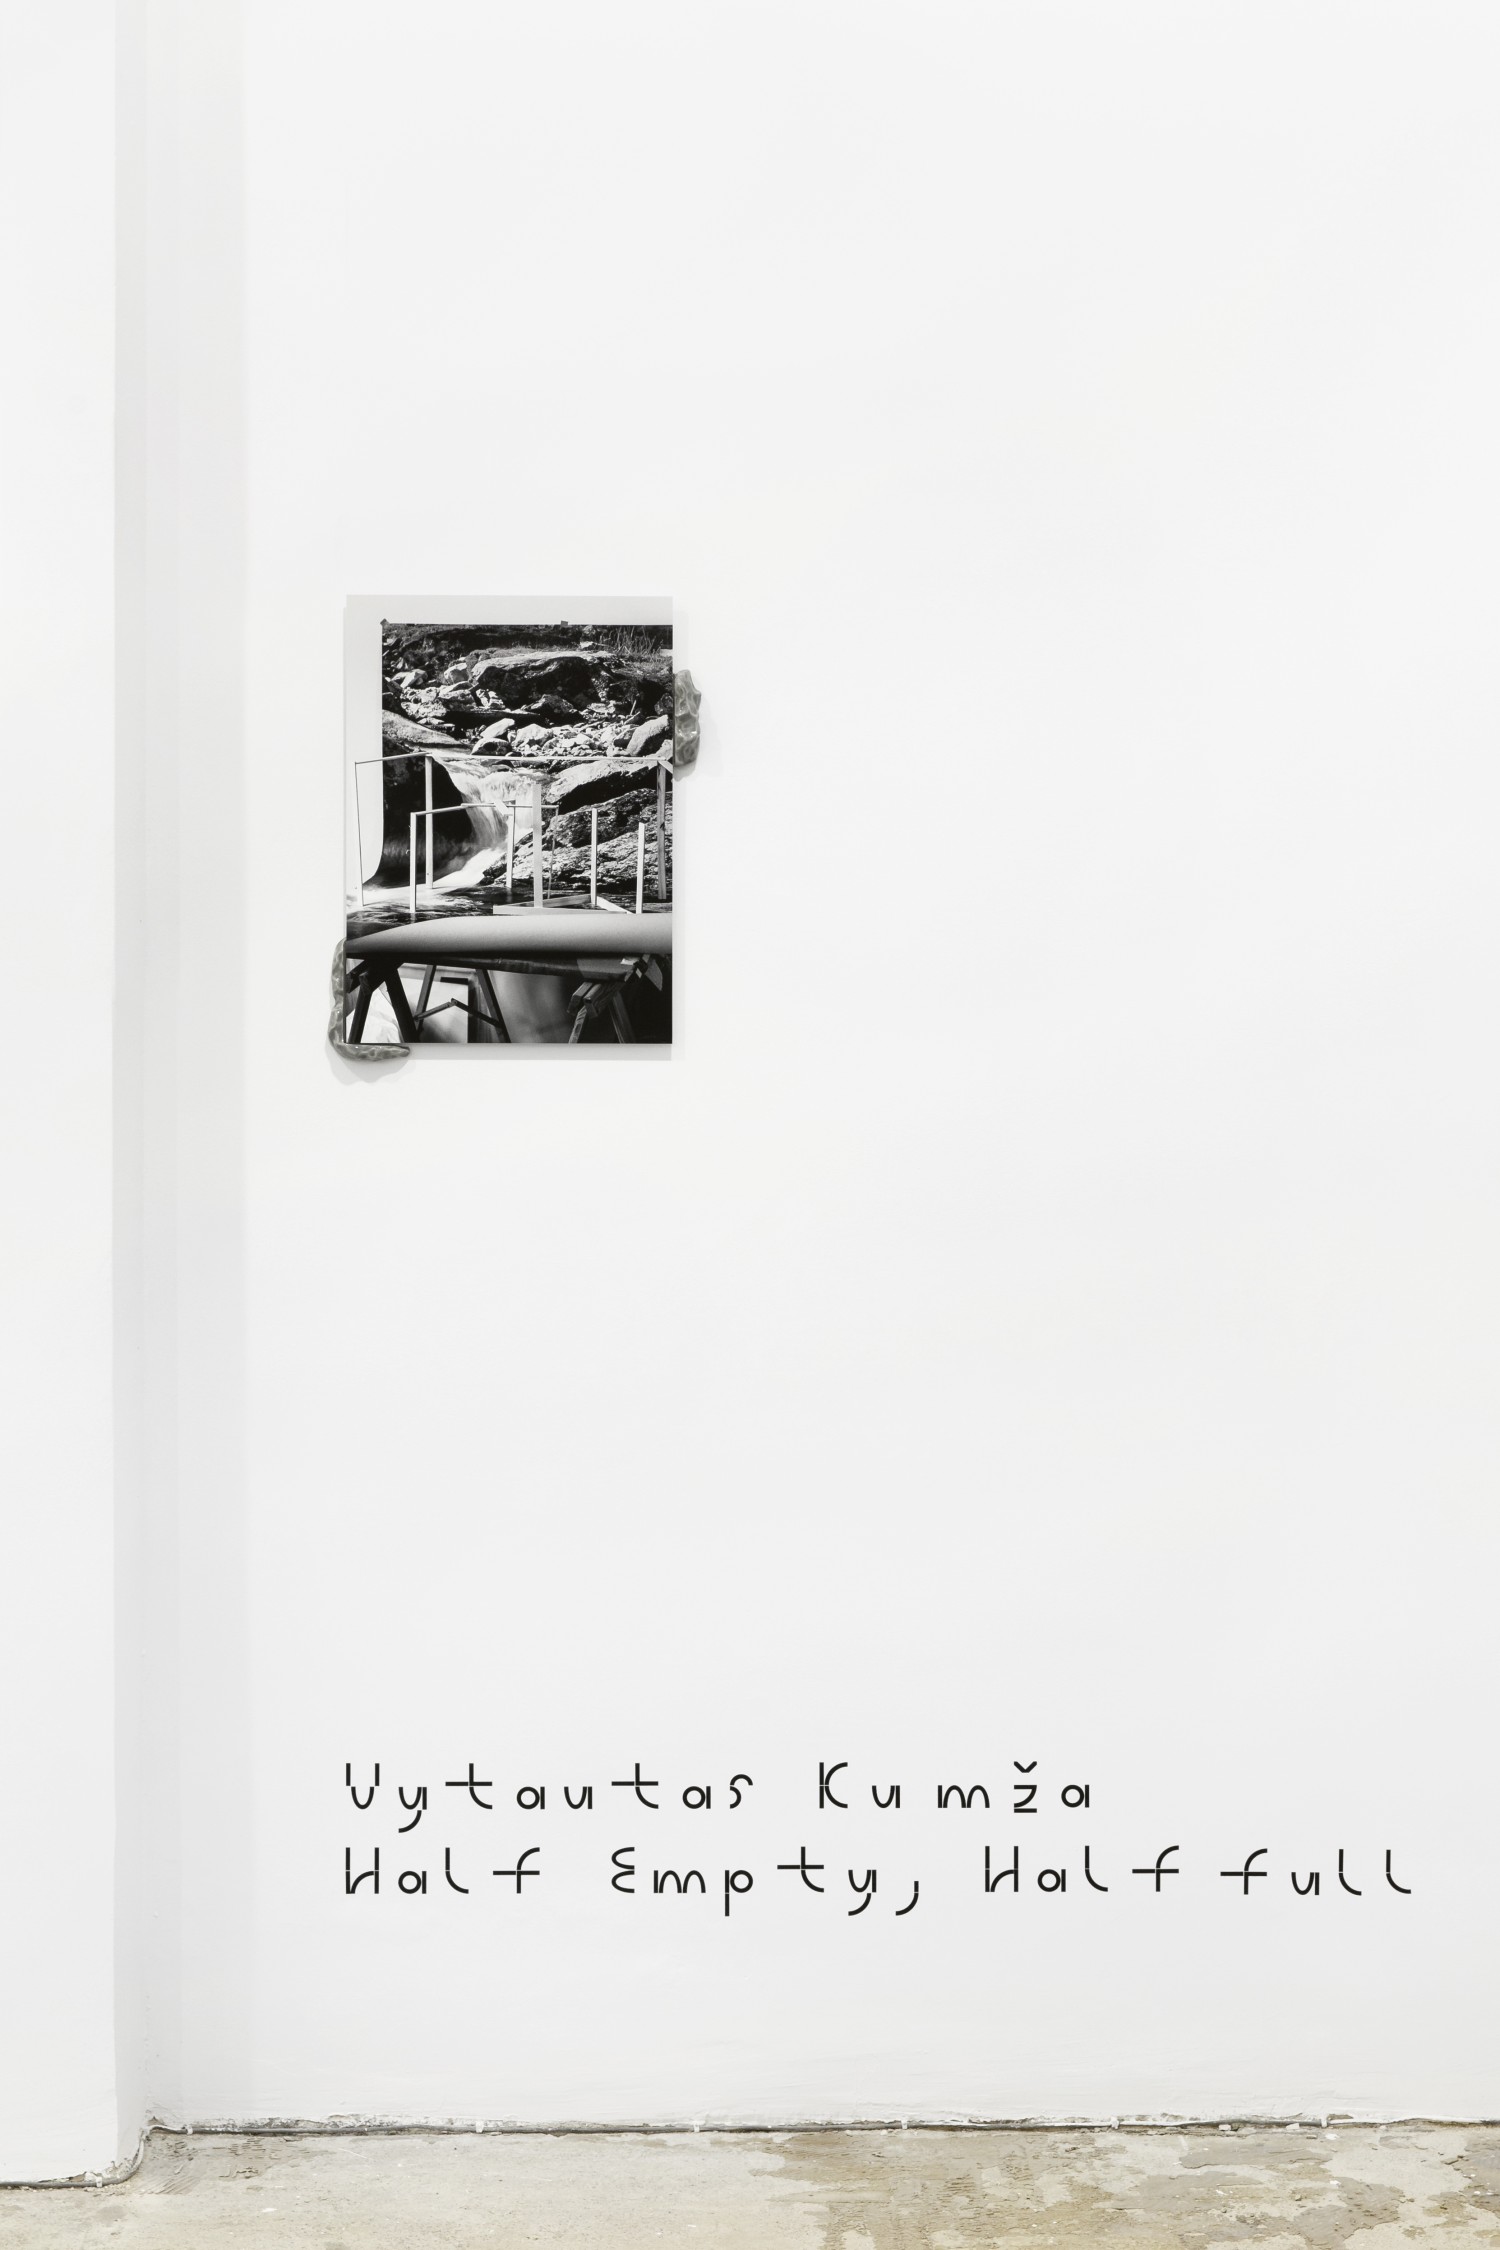 Vytautas Kumža
Half Empty, Half full